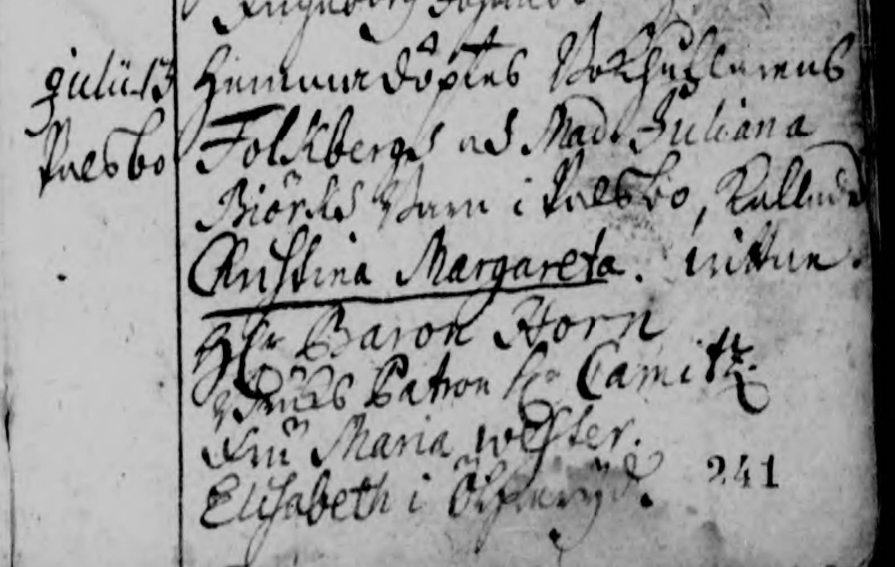 Julii 13
Valsbo
Hemmadöptes Bokhållarens
Folkbergs och Mad. Juliana
Biörks barn i Valsbo, kallad
Christina Margareta. Wittne.
Hr Baron Horn
Bruks Patron Hr Camitz.
Fru Maria
Elisabeth i
241